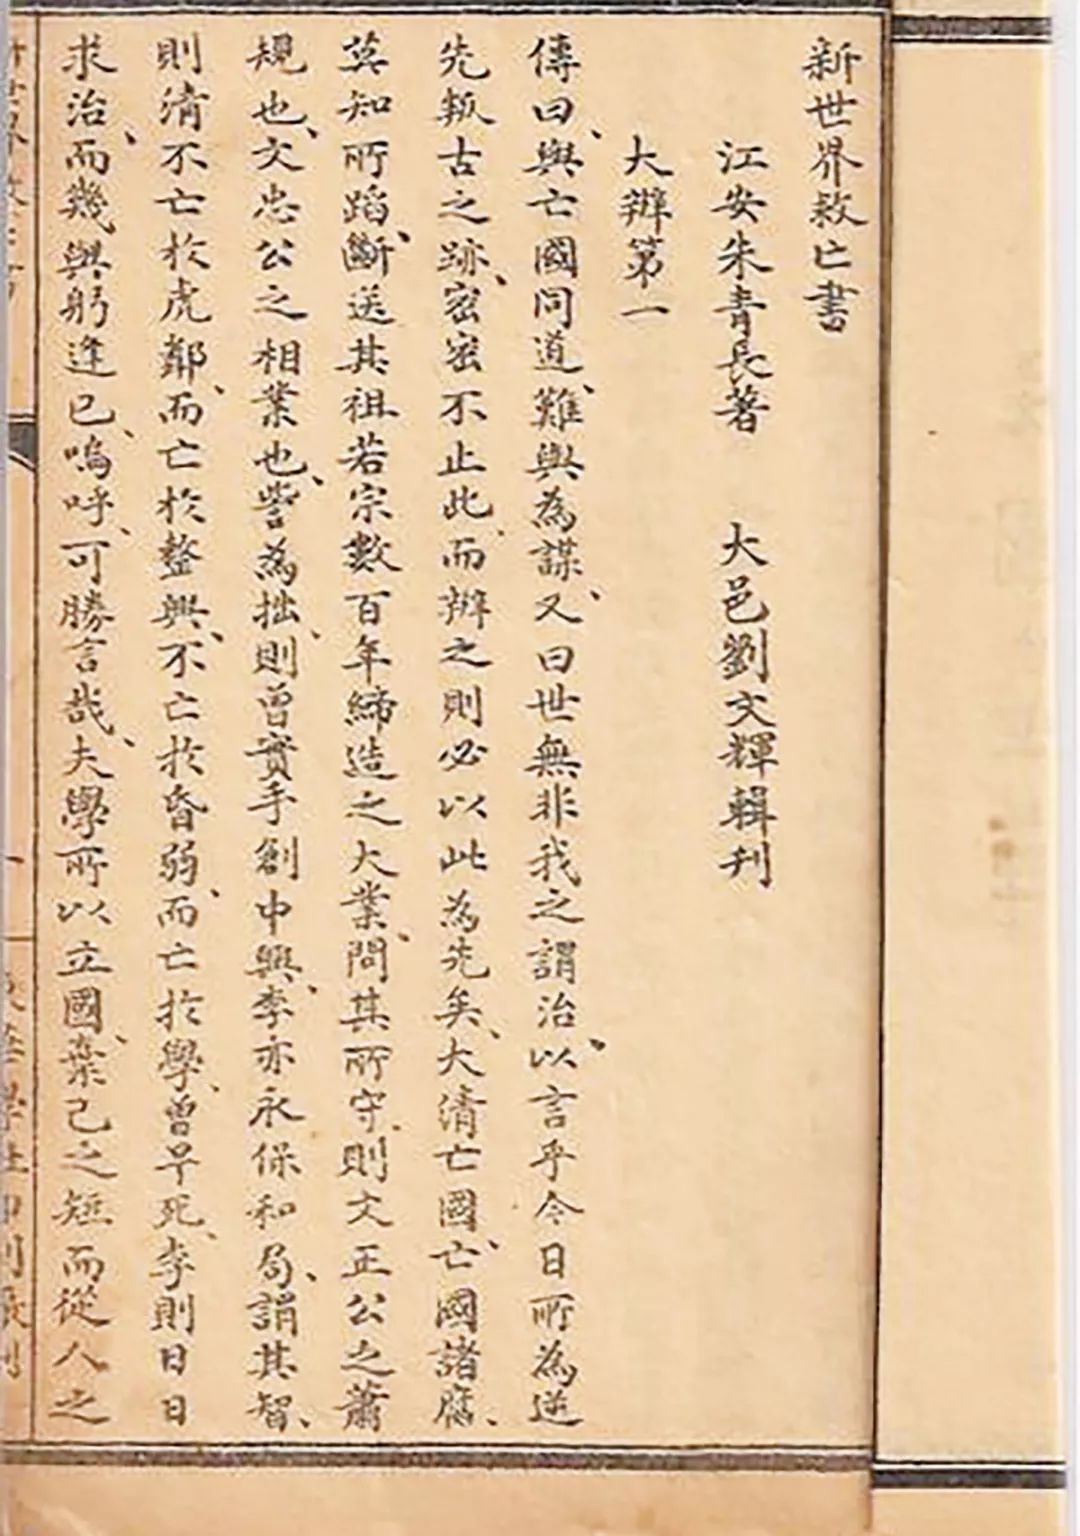 新世界救亡書
江安朱青長著 大邑劉文輝輯刊
大辦第一
傳曰、與亡國同道、難與為謀、又曰世無非我之謂治、以言乎今日所為逆
先叛古之跡、密密不止此、而辦之則必以此為先矣、大清亡國、亡國諸腐、
莫知所蹈、斷送其祖若宗數百年締造之大業、問其所守、則文正公之蕭
規也、文忠公之相業也、訾為拙、則曾實手創中興、李亦永保和局、謂其智、
則清不亡於虎鄰、而亡於整興、不亡於昏弱、而亡於學、曾早死、李則日日
求治、而幾與躬逢已、嗚呼、可勝言哉、夫學所以立國、棄己之短而從人之